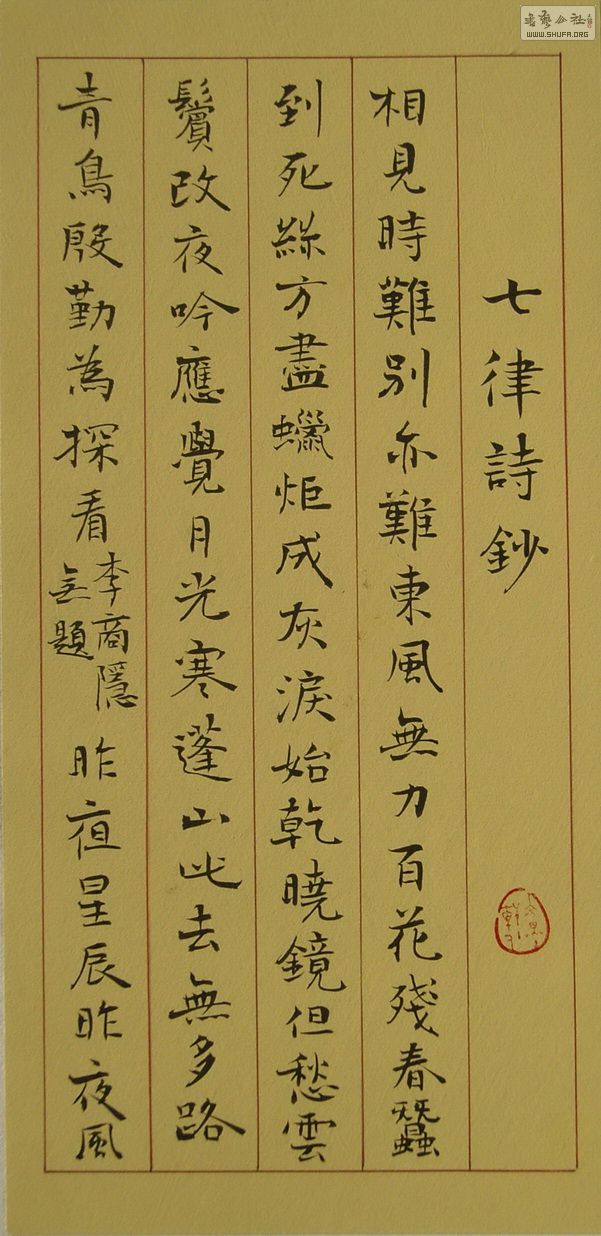 七律詩鈔
相見時難別亦難東風無力百花殘春蠶
到死絲方盡蠟炬成灰淚始乾曉鏡但愁雲
鬢改夜吟應覺月光寒蓬山此去無多路
青鳥殷勤為探看李商隱無題昨夜星辰昨夜風
WWW.SHUFA.ORG